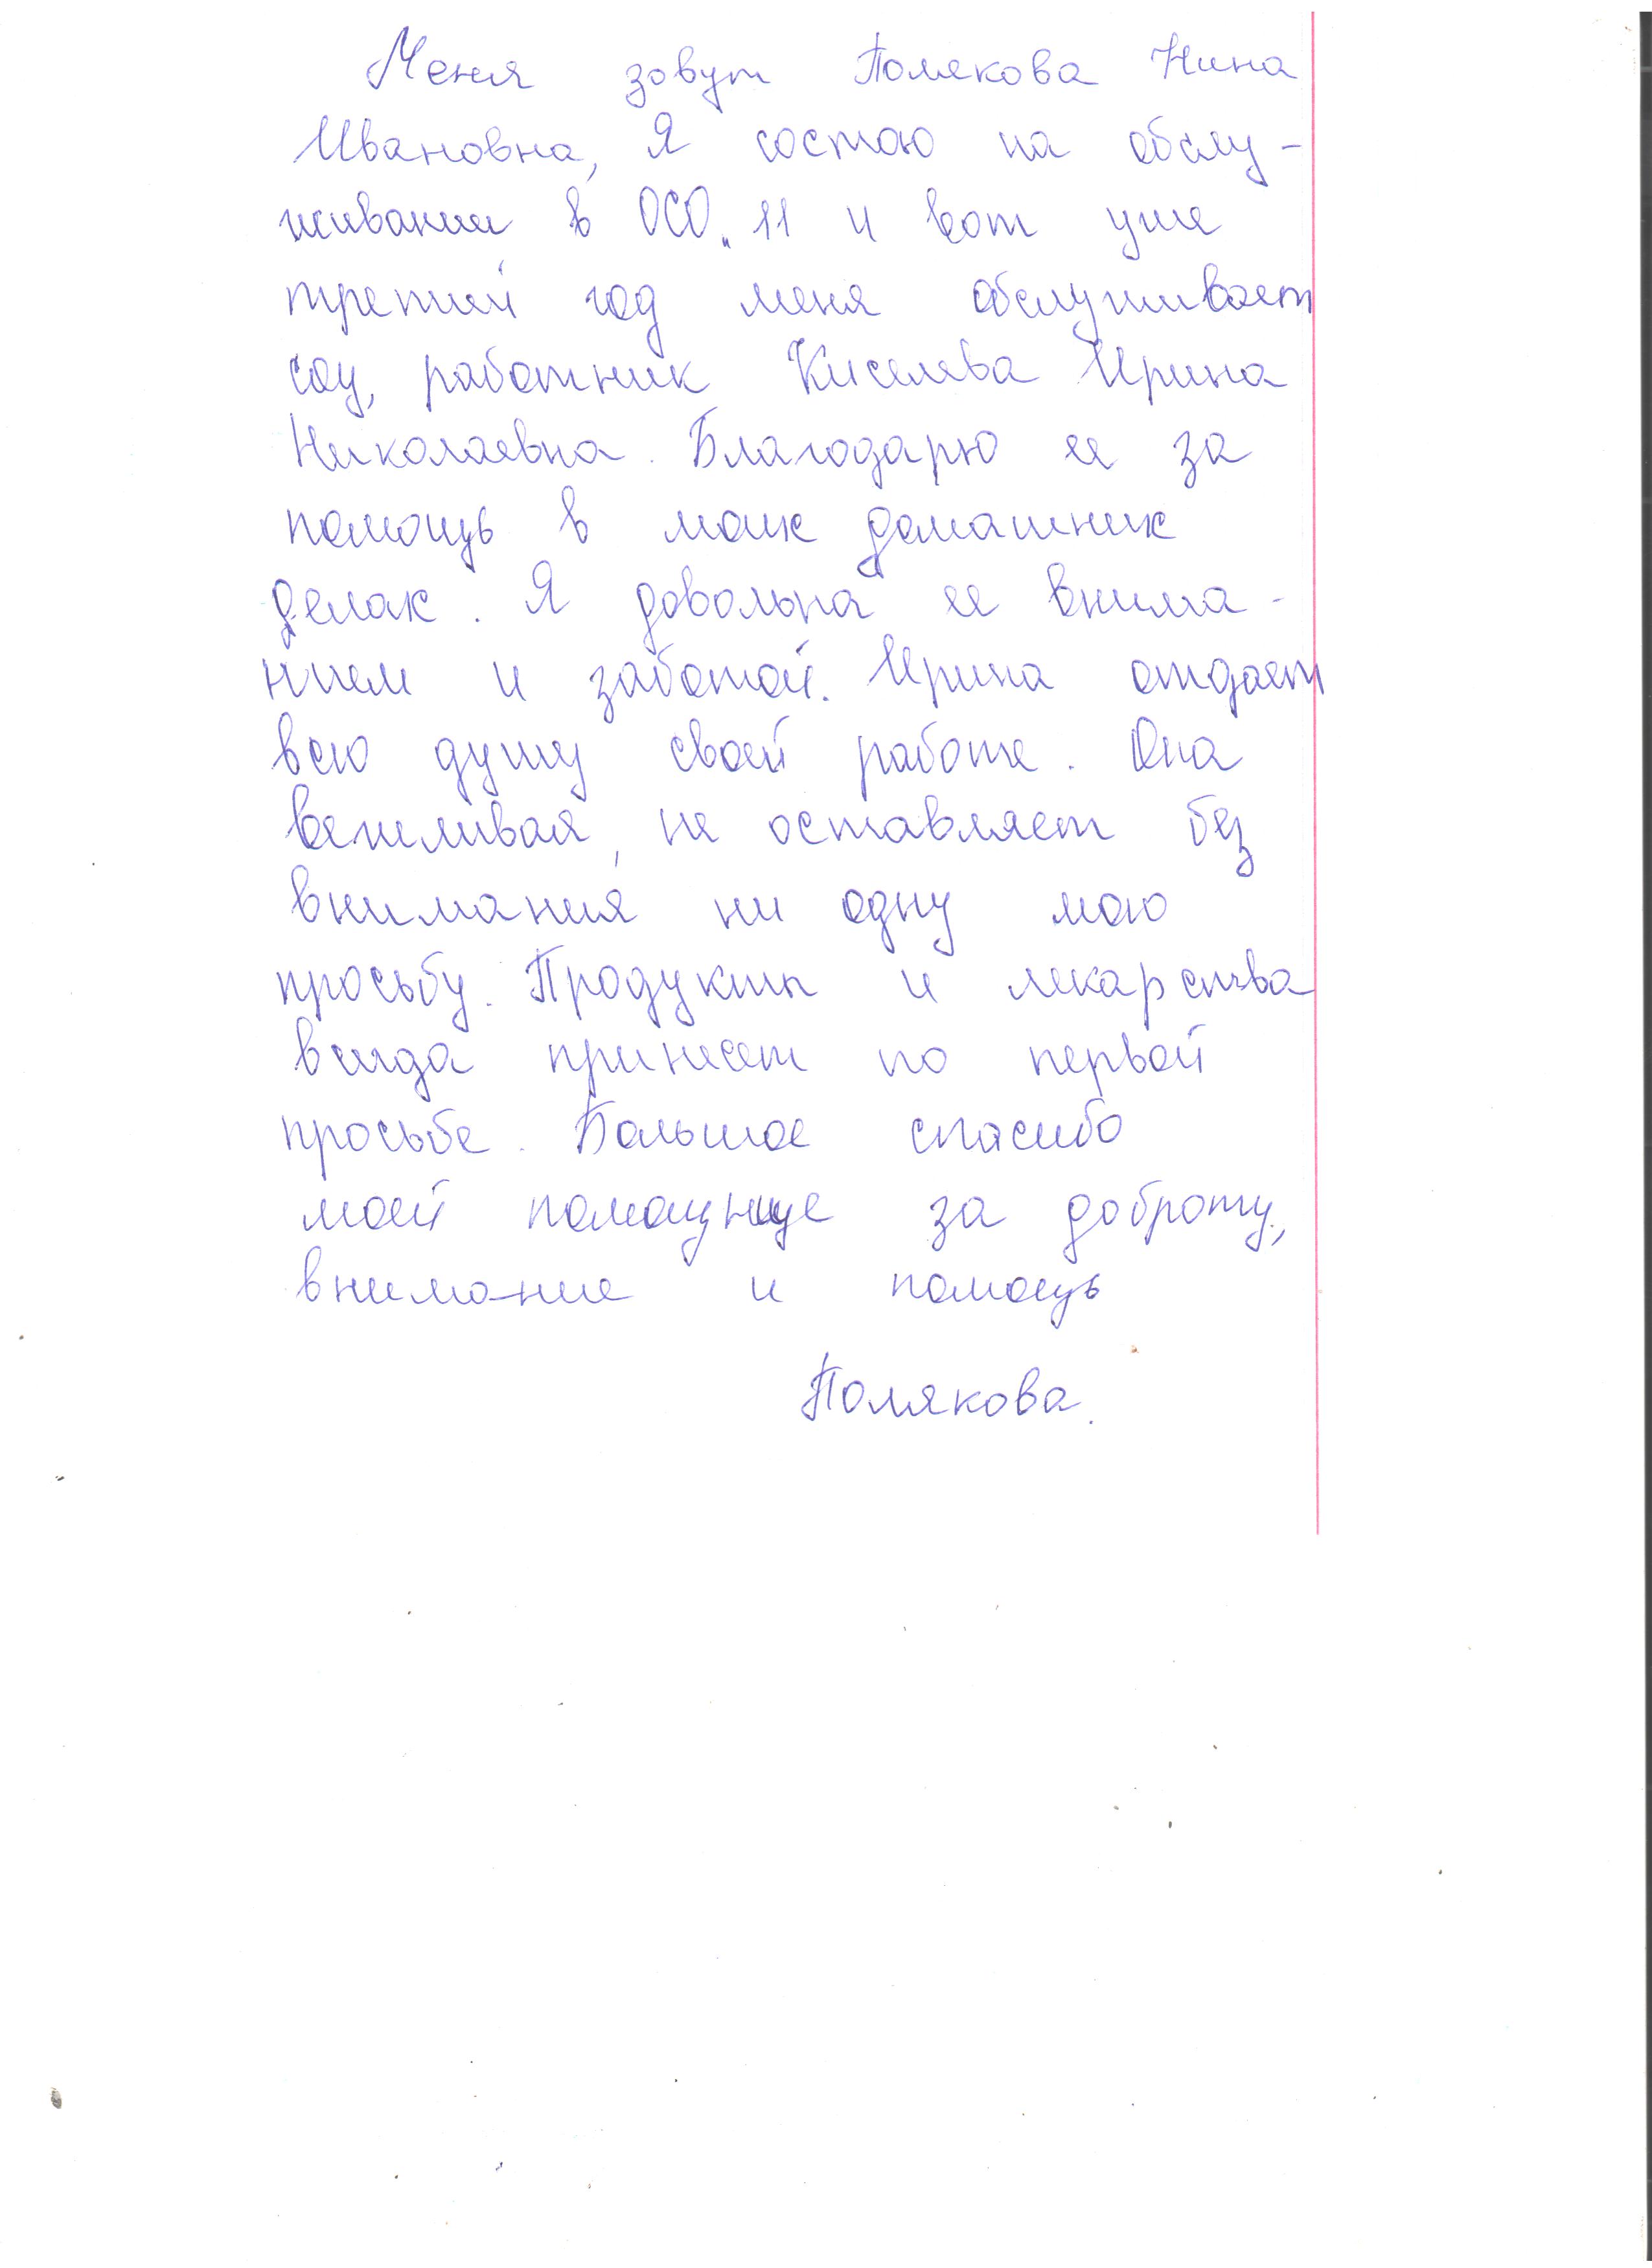 Меня зовут Полякова Нина
Ивановна, Я состою на обслу-
живании в ОСО „11 и вот уже
третий год меня обслуживает
соц, работник Киселева Ирина
Николаевна. Благодарю ее за
помощь в моих домашних
делах. Я довольна ее внима-
нием и заботой. Ирина отдает
всю душу своей работе. Она
вежливая, не оставляет без
внимания ни одну мою
просьбу. Продукты и лекарства
всегда принесет по первой
просьбе. Большое спасибо
моей помощнице за доброту,
внимание и помощь
Полякова.